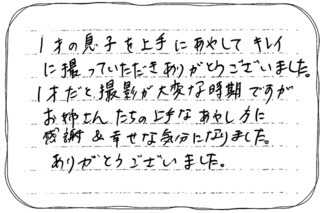 1才の息子を上手にあやしてキレイ
に撮っていただきありがとうございました。
1才だと、撮影が大変な時期ですが
お姉さんたちの上手なあやし方に
感謝&幸せな気分になりました。
ありがとうございました。